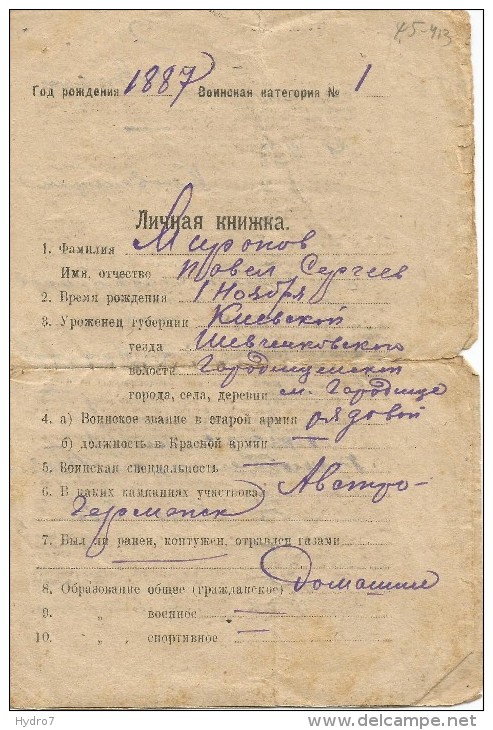 45-413
Год рождения 1887 Воинская категория № 1
Личная книжка.
1. Фамилия Миронов
Имя, отчество Павел Сергеев
2. Время рождения 1 Ноября
3. Уроженец губернии Киевской
уезда Шевченковского
волости Городищенской
города, села, деревни м. Городище
4. а) Воинское звание в старой армии рядовой
б) должность в Красной армии —
5. Воинская специальность —
6. В каких кампаниях участвовал Австро-
Германск
7. Был ли ранен, контужен, отравлен газами
8. Образование общие (гражданское) Домашнее
9. „ военное —
10. „ „ спортивное —
Hydro7
www.delcampe.net